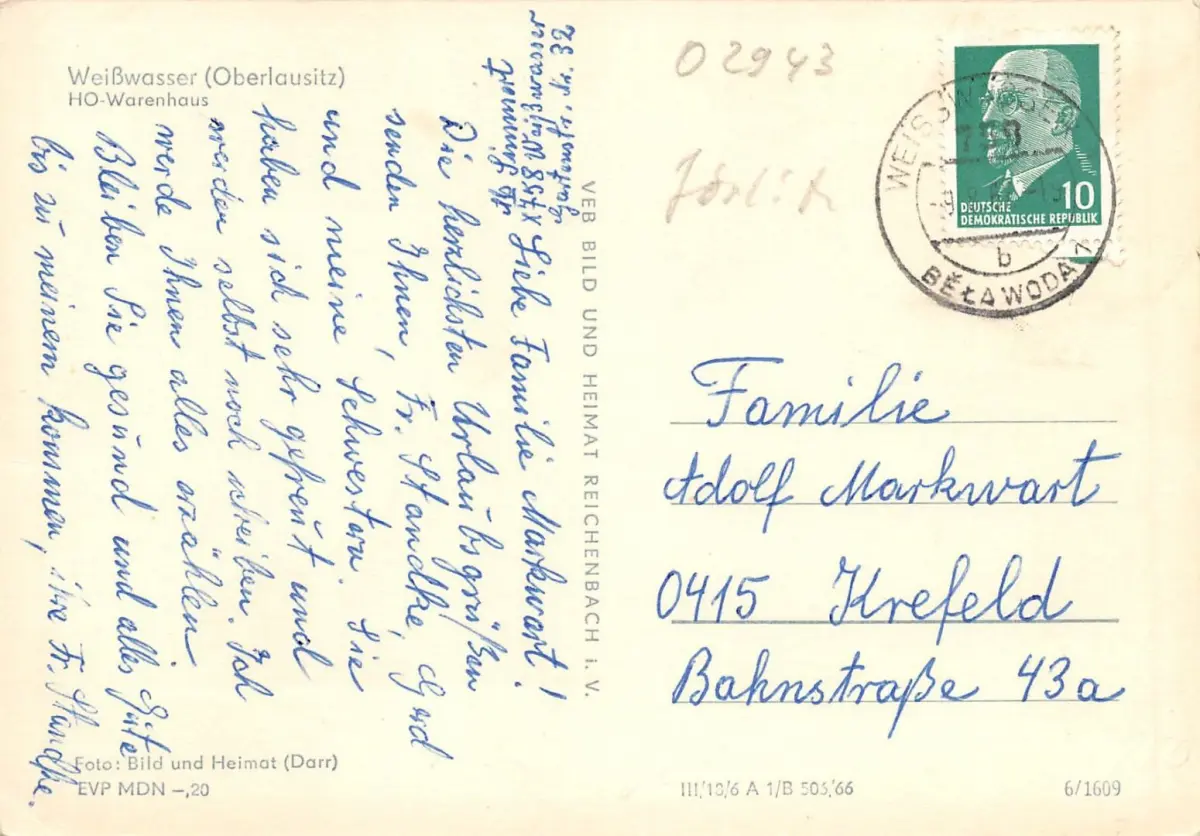 Weißwasser (Oberlausitz)
HO-Warenhaus
758 Weißwasser
Liebe Familie Markwart!
Die herzlichsten Urlaubsgrüßen
senden Ihnen, Fr. Standke, Gerd
und meine Schwestern. Sie
haben sich sehr gefreut und
werden selbst noch schreiben. Ich
werde Ihnen alles erzählen.
Bleiben Sie gesund und alles Gute
bis zu meinem kommen, ihre Fr. Standke.
Foto: Bild und Heimat (Darr)
EVP MDN –,20
VEB BILD UND HEIMAT REICHENBACH i. V.
O 2943
Görlitz
WEISSWASSER
BĚŁA WODA 1
b
10
DEUTSCHE
DEMOKRATISCHE REPUBLIK
Familie
Adolf Markwart
0415 Krefeld
Bahnstraße 43a
III/18/6 A 1/B 505/66
6/1609